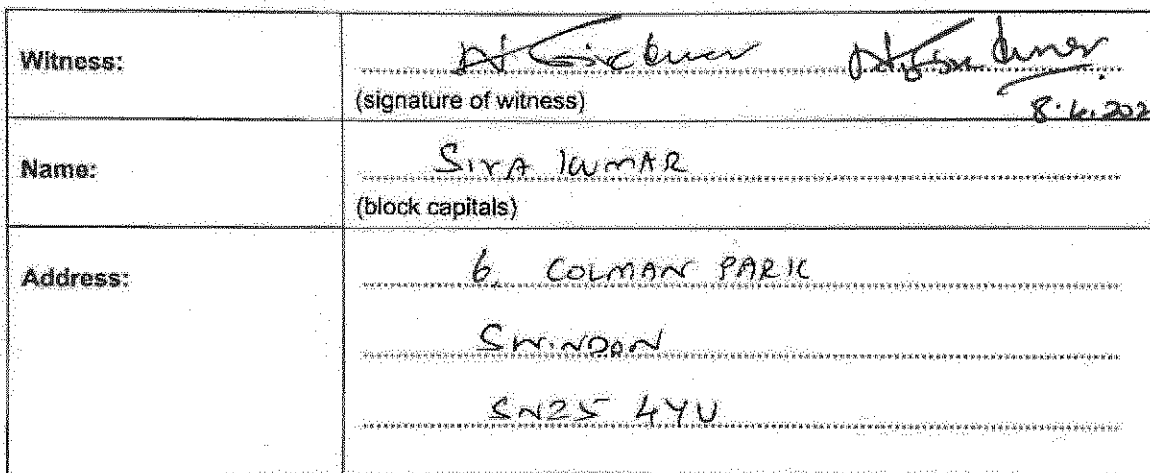 Witness:
(signature of witness)
8.6.202
Name:
SIVA KUMAR
(block capitals)
Address:
6, COLMAN PARK
SWINDON
SN25 4YU